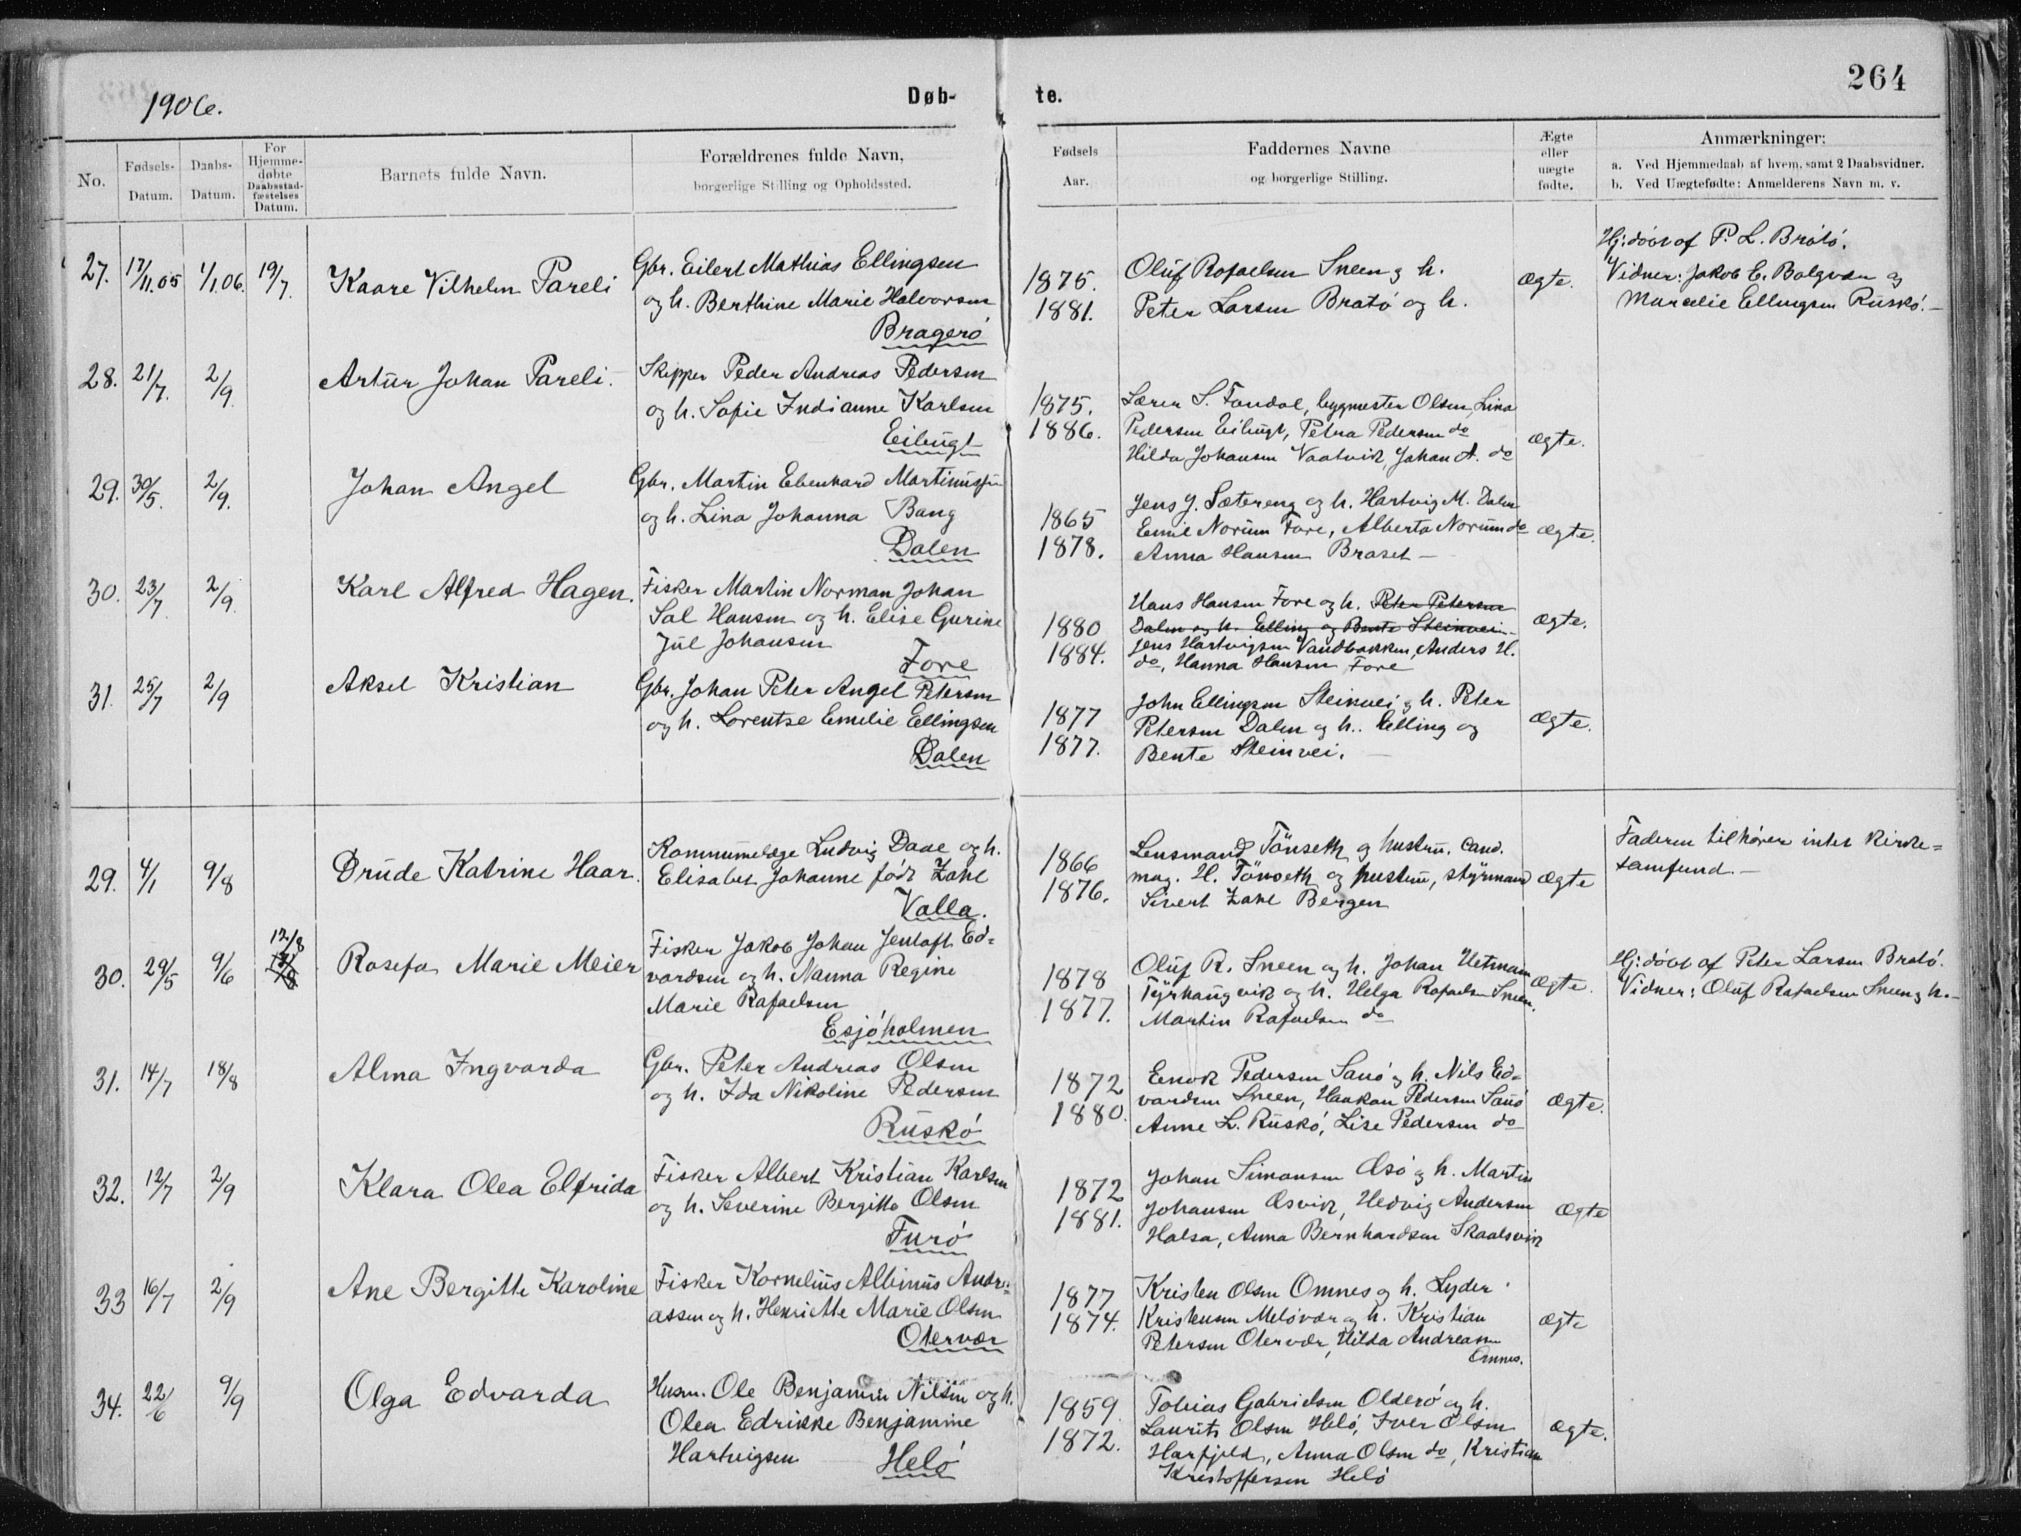 264
1906.
Døb-
te.
No.
Fødsels-
Datum.
Daabs-
Datum.
For
Hjemme-
døbte
Daabsstad-
fæstelses
Datum.
Barnets fulde Navn.
Forældrenes fulde Navn,
borgerlige Stilling og Opholdssted.
Fødsels
Aar.
Faddernes Navne
og borgerlige Stilling.
Ægte
eller
uægte
fødte.
Anmærkninger:
a. Ved Hjemmedaab af hvem, samt 2 Daabsvidner.
b. Ved Uægtefødte: Anmelderens Navn m. v.
27. 17/11.05 1/1.06. 19/7. Kaare Vilhelm Pareli
Gbr. Eilert Mathias Ellingsen
og h. Berthine Marie Halvorsen
Bragerö
1875.
1881.
Oluf Rafaelsen Sneen g h.
Peter Larsen Bratö og h.
ægte.
Hj:döbt af P. L. Brätö.
Vidner: Jakob E. Bolgvæn og
Marselie Ellingsen Ruskö.
28. 21/7. 2/9. Artur Johan Pareli.
Skipper Peder Andreas Pedersen
og h. Sofie Indianne Karlsen
Eibugt
1875.
1886.
Lærer S. Fondal, bygmester Olsen, Lina
Pedersen Eibugt, Petra Pedersen do
Hilda Johansen Vaatvik, Johan A. do
ægte.
29. 30/5. 2/9. Johan Angel
Gbr. Martin Ebenhard Martinussen
og h. Lina Johanna Bang
Dalen
1865
1878.
Jens J. Sætereng og h. Hartvig M. Dalen
Emil Norum Fore, Alberta Norum do
Anna Hansen Braset
ægte.
30. 23/7. 2/9. Karl Alfred Hagen.
Fisker Martin Norman Johan
Sal Hansen og h. Elise Gurine
Jul Johansen
Fore
1880
1884.
Hans Hansen Fore og h. Peter Petersen
Dalen og h. Elling og Bente Steinvei
Jens Hartvigsen Vandbakken, Anders H.
do, Hanna Hansen Fore
ægte.
31. 25/7 2/9 Aksel Kristian
Gbr. Johan Peter Angel Petersen
og h. Lorentse Emelie Ellingsen
Dalen
1877
1877.
John Ellingsen Steinvei g h. Peter
Petersen Dalen g h. Elling og
Bente Steinvei.
ægte.
29. 4/1 9/8 Drude Katrine Haar.
Kommunelæge Ludvig Daae og h.
Elisabet Johanne född Zahl
Valla.
1866
1876.
Lensmand Tönseth g hustru. Cand.
mag. H. Tönseth og hustru, styrmand
Sivert Zahl Bergen
ægte
Faderen tilhører intet kirke=
samfund.
30. 29/5 9/6 12/8 Rosefa Marie Meier
Fisker Jakob Johan Jentoft Ed=
vardsen og h. Nanna Regine
Marie Rafaelsen
Esjöholmen
1878
1877.
Oluf R. Sneen og h. Johan Hetman
Tyrhaugvik og h. Helga Rafaelsen Sneen,
Martin Rafaelsen do
ægte.
Hj:döbt af Peter Larsen Bratö.
Vidner: Oluf Rafaelsen Sneen g h.
31. 14/7 18/8 Alma Ingvarda
Gbr. Peter Andreas Olsen
og h. Ida Nikoline Pedersen
Ruskö
1872
1880.
Enok Pedersen Sauö g h. Nils Ed=
vardsen Sneen, Haakon Pedersen Sauö
Anne L. Ruskö, Lise Pedersen do
ægte.
32. 12/7 2/9 Klara Olea Elfrida
Fisker Albert Kristian Karlsen
og h. Severine Bergitte Olsen
Furö
1872
1881.
Johan Simonsen Æsö g h. Martin
Johansen Æsvik, Hedvig Andersen
Halsa, Anna Bernhardsen Skaalsvik
ægte
33 16/7 2/9 Ane Bergitte Karoline
Fisker Kornelius Albinus Andre=
assen og h. Henriette Marie Olsen
Otervær
1877
1874.
Kristen Olsen Omnes g h. Lyder
Kristensen Melövær g h. Kristian
Petersen Otervær, Hilda Andreasen
Omnes.
ægte
34. 22/6 9/9 Olga Edvarda
Husm. Ole Benjamin Nilsen og h.
Olea Edrikke Benjamine
Hartvigsen
Helö
1859.
1872.
Tobias Gabrielsen Olderö og h.
Laurits Olsen Helö, Iver Olsen
Harfjeld, Anna Olsen do, Kristian
Kristoffersen Helö
ægte.